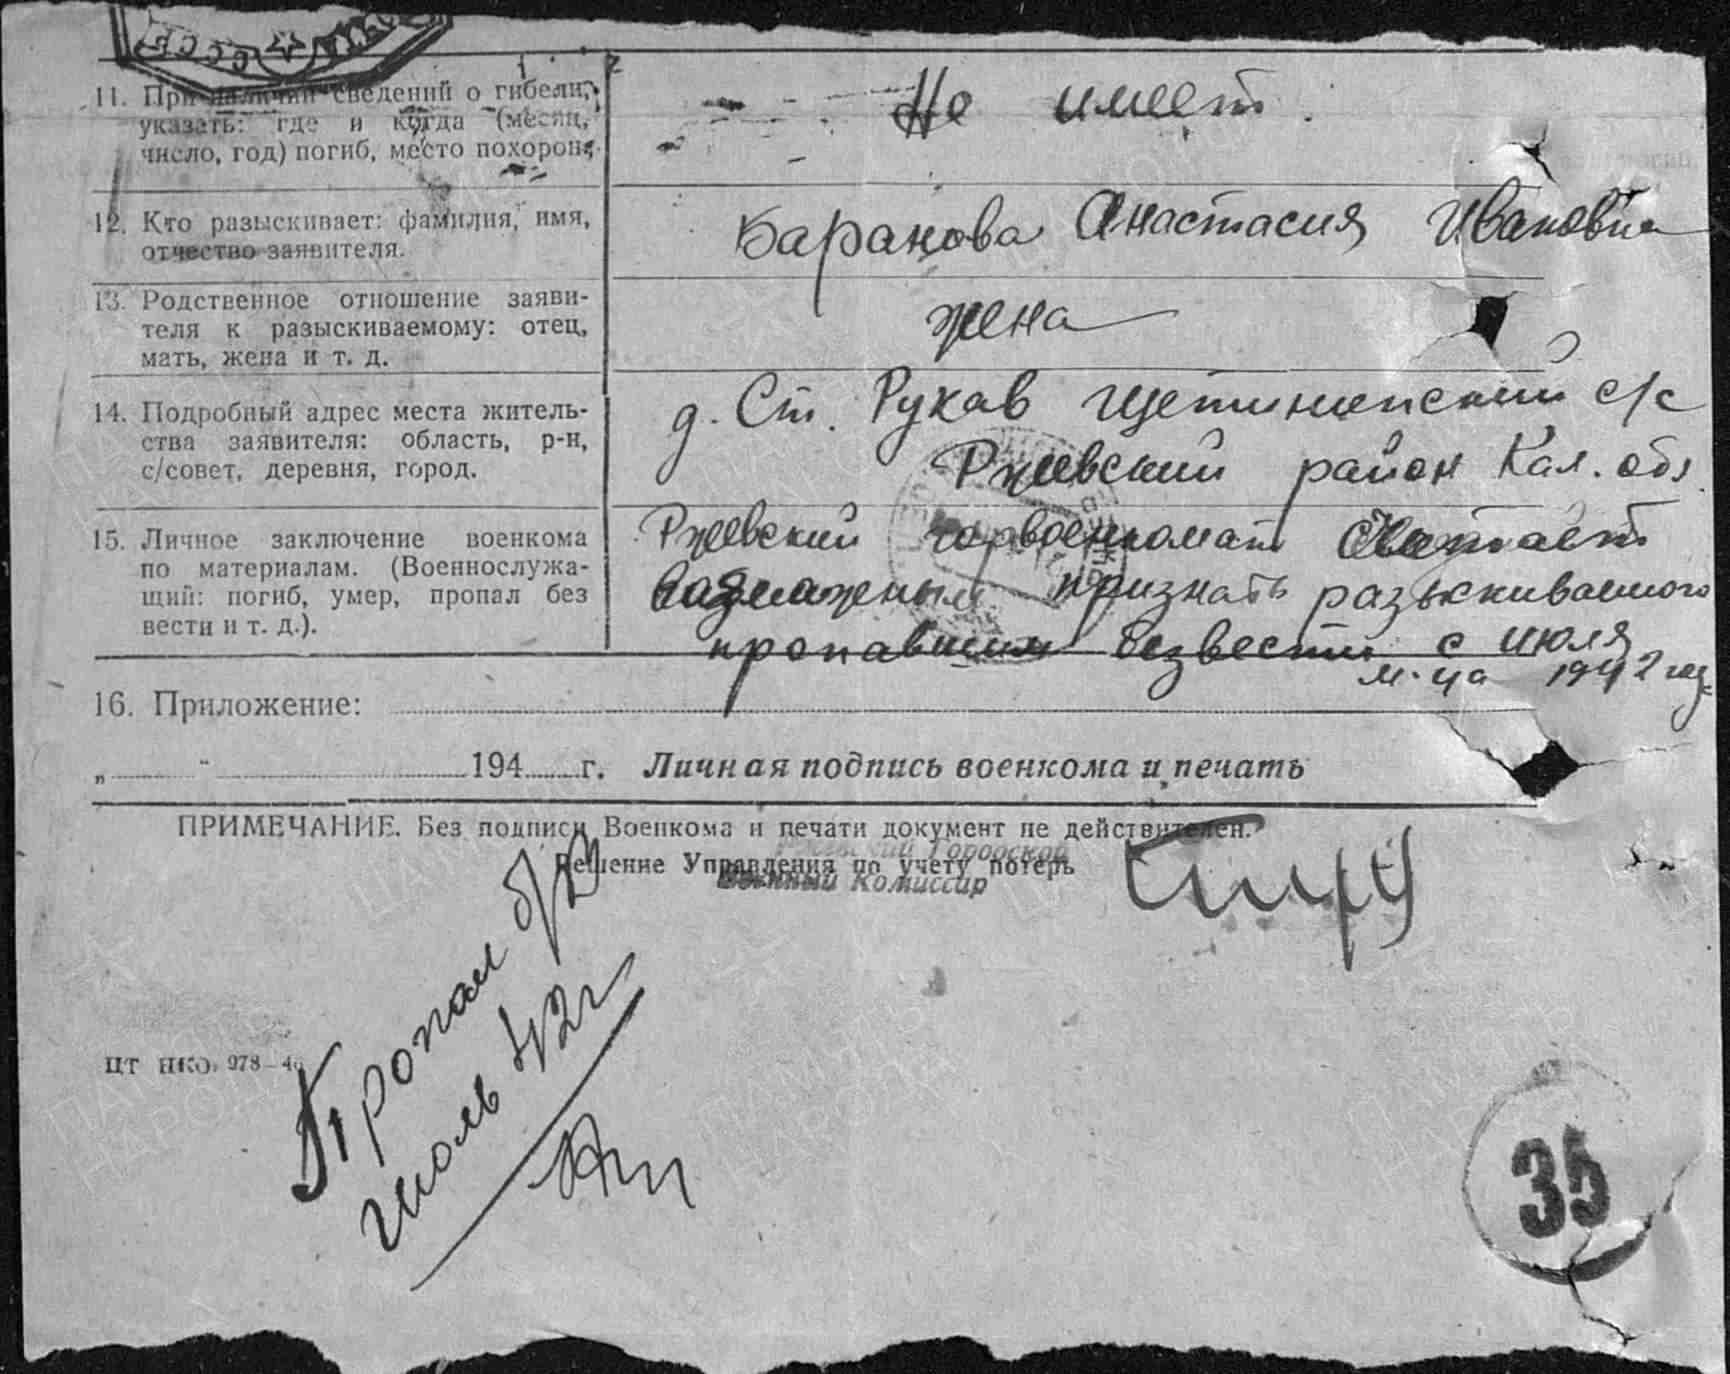 СССР
11. При наличии сведений о гибели,
указать: где и когда (месяц,
число, год) погиб, место похорон.
Не имеет.
12. Кто разыскивает: фамилия, имя,
отчество заявителя.
Баранова Анастасия Ивановна
13. Родственное отношение заяви-
теля к разыскиваемому: отец,
мать, жена и т. д.
жена
14. Подробный адрес места житель-
ства заявителя: область, р-н,
с/совет, деревня, город.
д. Ст. Рукав Щетининский с/с
Ржевский район Кал. обл.
15. Личное заключение военкома
по материалам. (Военнослужа-
щий: погиб, умер, пропал без
вести и т. д.).
Ржевский горвоенкомат считает
возможным признать разыскиваемого
пропавшим безвести с июля
м-ца 1942 года
16. Приложение:
„ " 194 г. Личная подпись военкома и печать
ПРИМЕЧАНИЕ. Без подписи Военкома и печати документ не действителен.
Решение Управления по учету потерь
Городской
Военный Комиссар
Пропал б/в
июль 42г
ЦТ НКО. 978—46
35